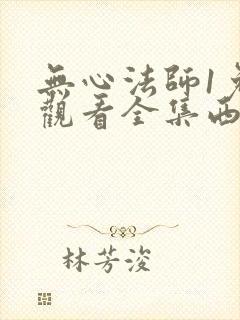 無心法師1
觀看全集西
林芳浚